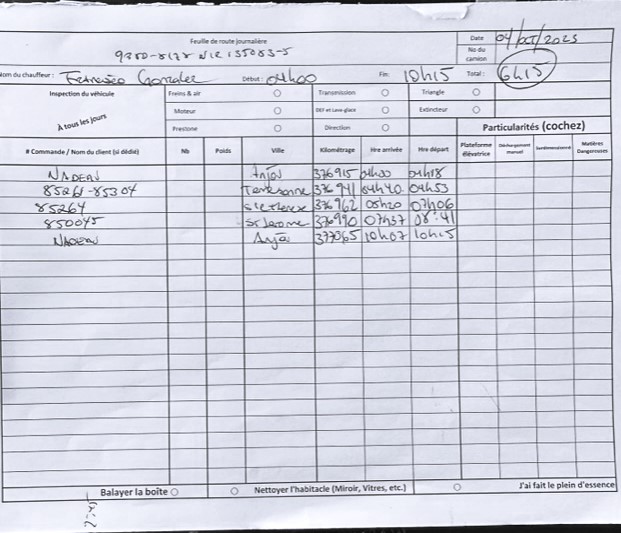 Feuille de route journalière
Date 04/OCT/2025
9350-8178 NIR 135083-5
No du camion
Nom du chauffeur : Francisco Gonzalez Début : 04h00 Fin: 10h15 Total : 6h15
Inspection du véhicule Freins & air Transmission Triangle
À tous les jours Moteur DEF et Lave-glace Extincteur
Prestone Direction Particularités (cochez)
# Commande / Nom du client (si dédié) Nb Poids Ville Kilométrage Hre arrivée Hre départ Plateforme élévatrice Déchargement manuel Surdimensionné Matières Dangereuses
NADEAU Anjou 376915 04h00 04h18
85261-85304 Terrebonne 376941 04h40 04h53
85264 Ste Therese 376962 05h20 07h06
850045 St Jerome 376990 07h37 08:41
NADEAU Anjou 377065 10h07 10h15
Balayer la boîte Nettoyer l'habitacle (Miroir, Vitres, etc.) J'ai fait le plein d'essence